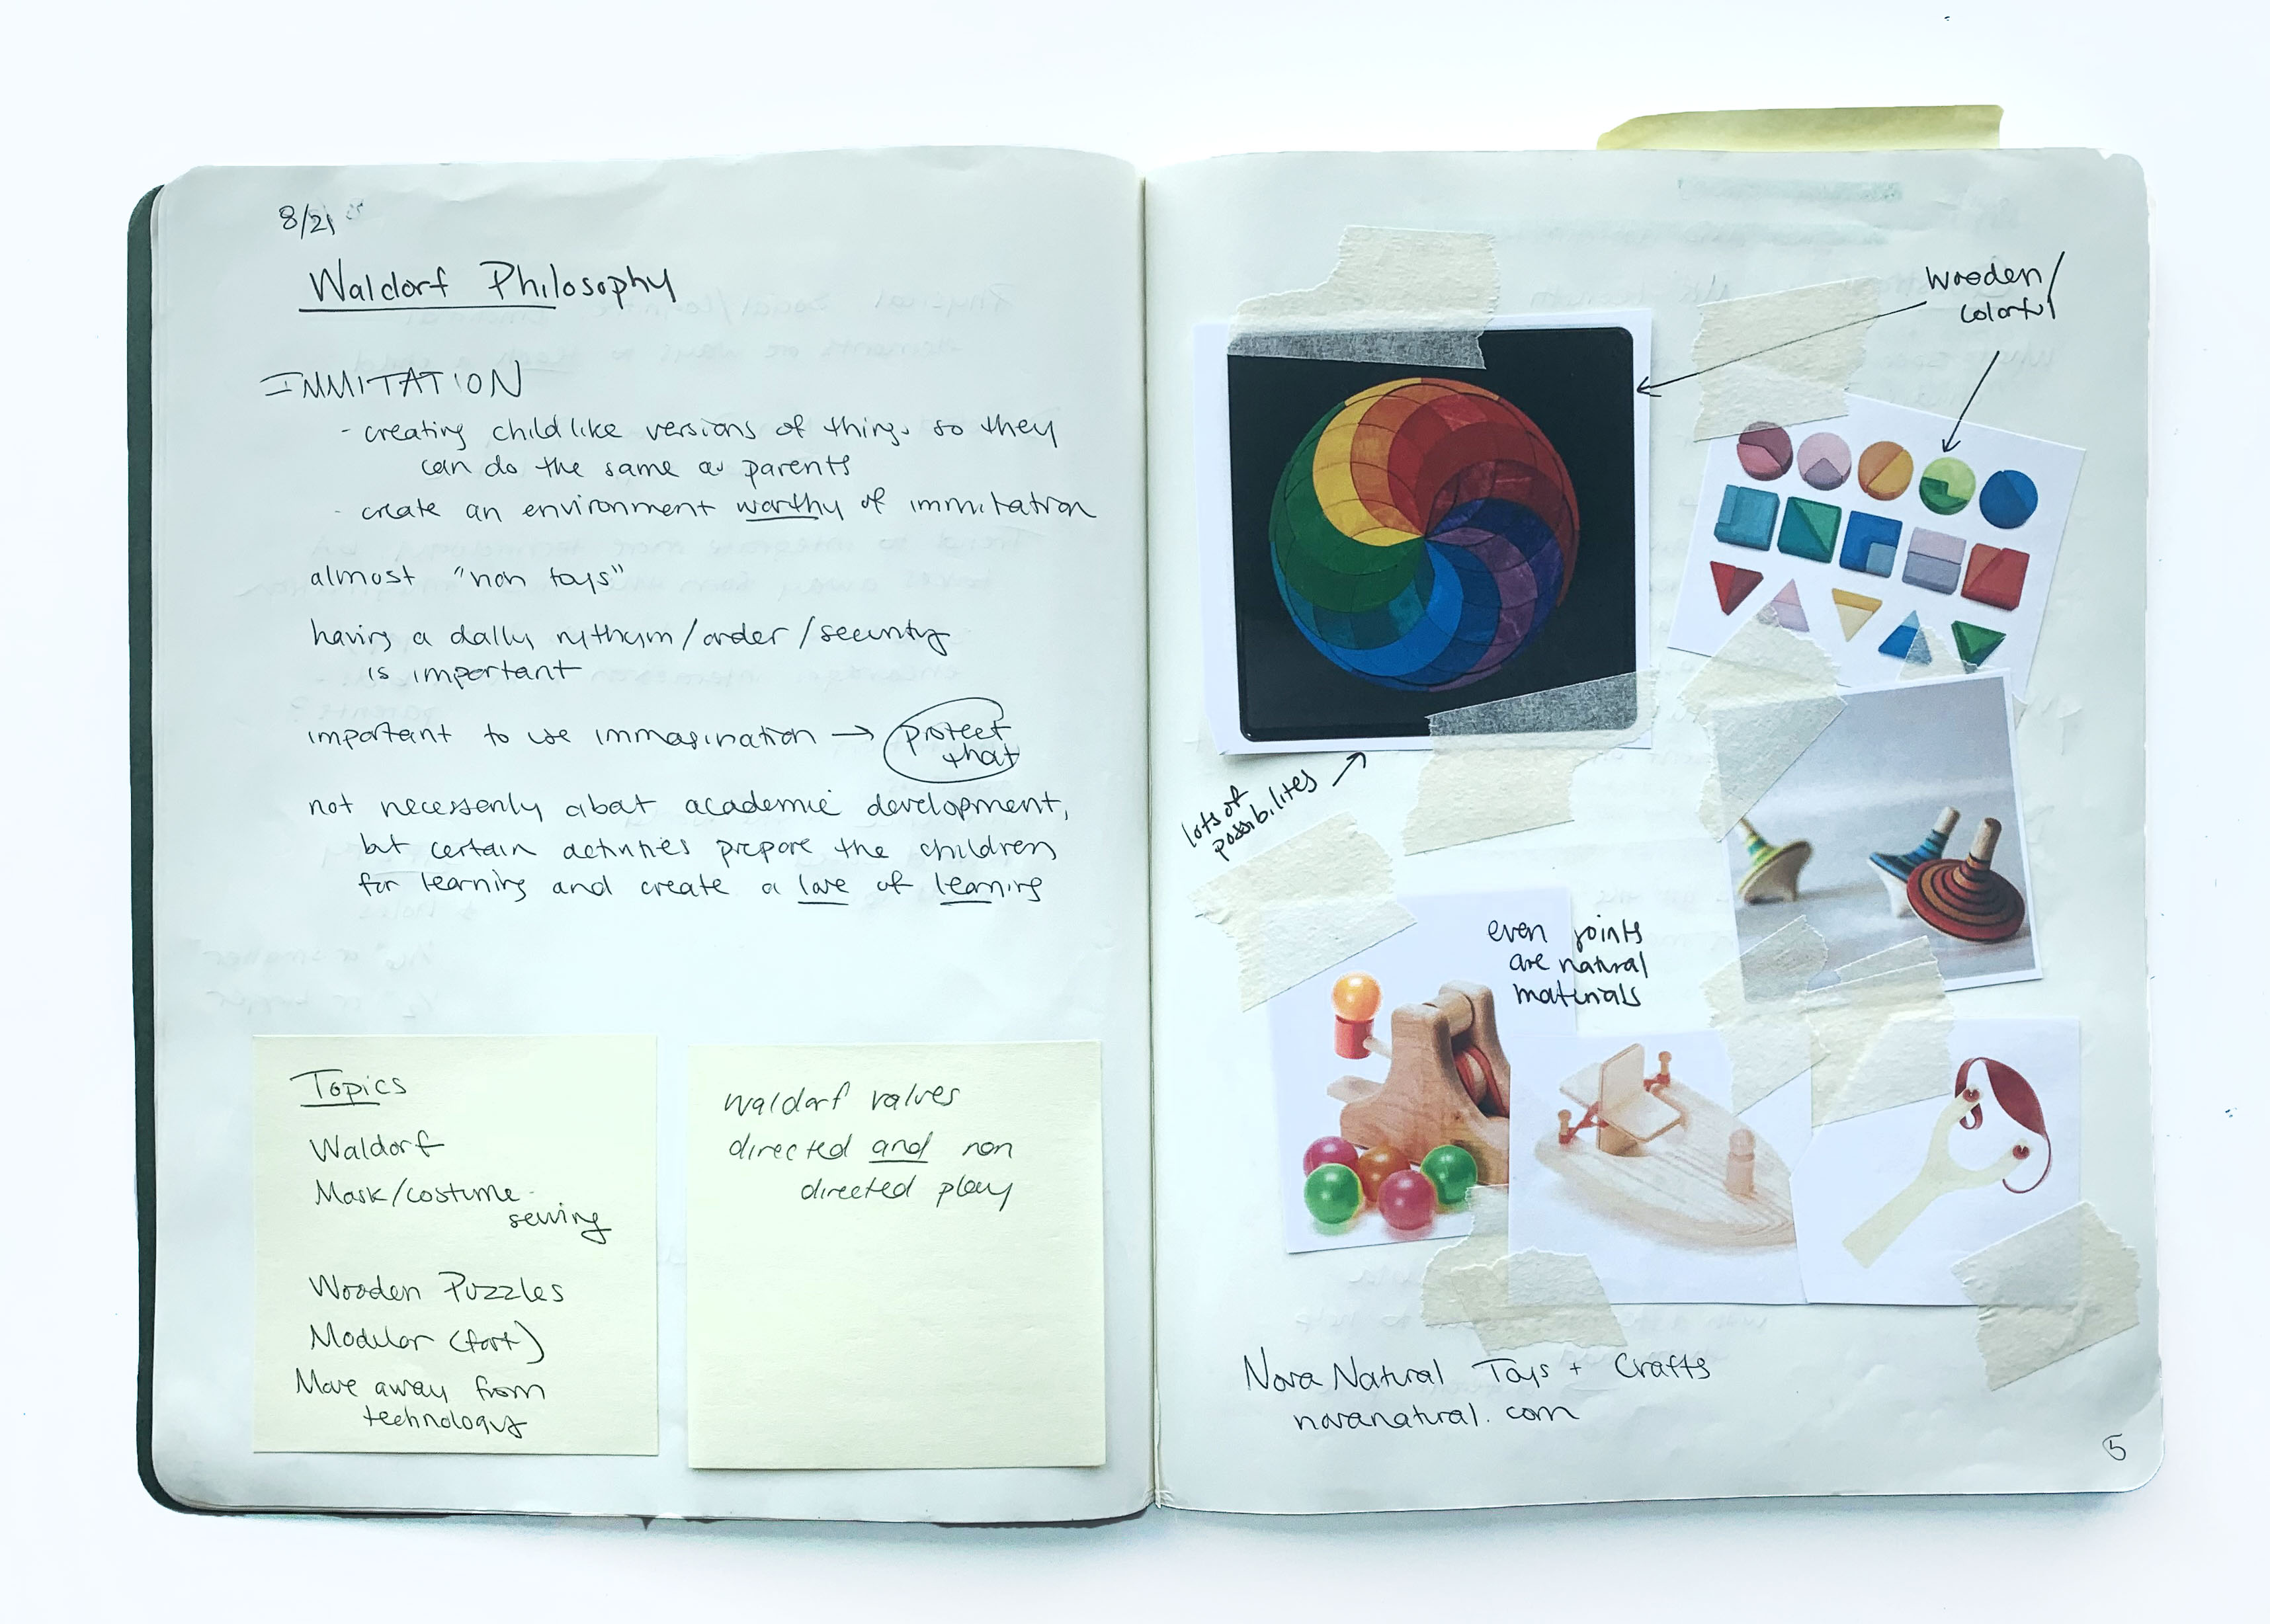 8/21
Waldorf Philosophy
IMMITATION
- creating childlike versions of things so they
can do the same as parents
- create an environment worthy of immitation
almost "non toys"
having a daily rythym/order/security
is important
important to use immagination → protect
that
not necessarily about academic development,
but certain activities prepare the children
for learning and create a love of learning
Topics
Waldorf
Mask/costume
sewing
Wooden Puzzles
Modular (fort)
Move away from
technology
waldorf values
directed and non
directed play
wooden/
colorful
lots of
possibilites
even joints
are natural
materials
Nova Natural Toys + Crafts
novanatural.com
5